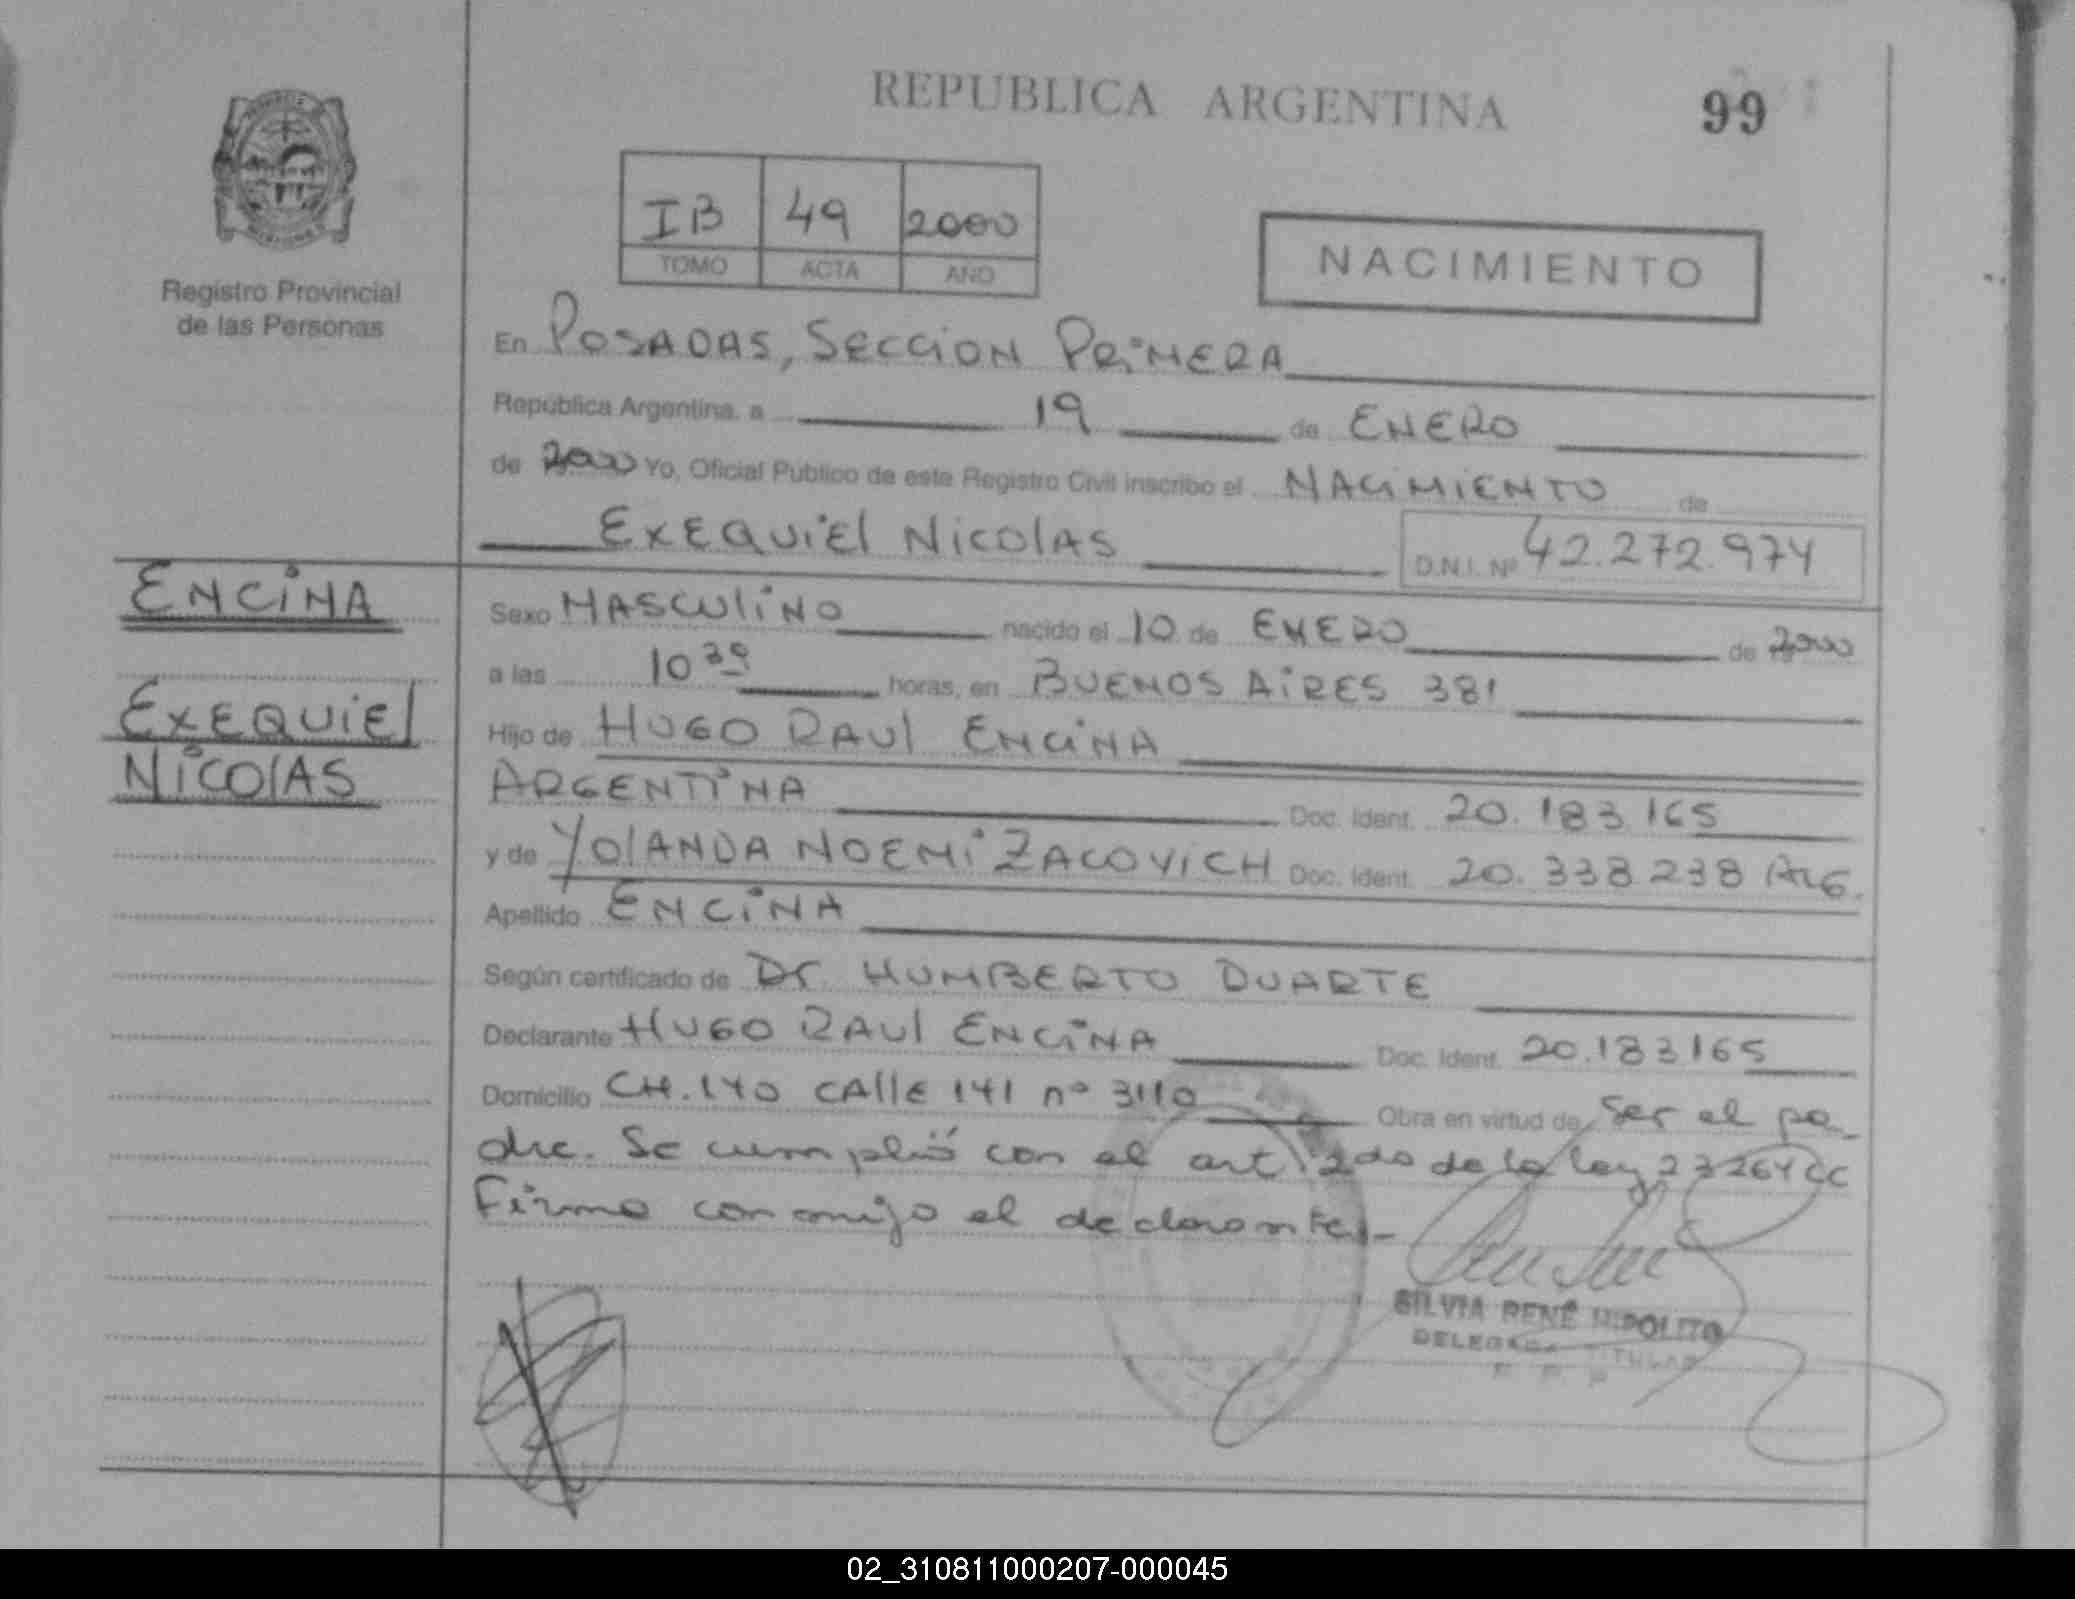 REPUBLICA ARGENTINA
99
Registro Provincial
de las Personas
IB 49 2000
TOMO ACTA AÑO
NACIMIENTO
En POSADAS, SECCION PRIMERA
República Argentina, a 19 de ENERO
de 2000 Yo, Oficial Público de este Registro Civil inscribo el NACIMIENTO de
EXEQUIEL NICOLAS D.N.I. Nº 42.272.974
ENCINA
EXEQUIEL
NICOLAS
Sexo MASCULINO nacido el 10 de ENERO de 2000
a las 10 30 horas, en BUENOS AIRES 381
Hijo de HUGO RAUL ENCINA
ARGENTINA Doc. Ident. 20.183.165
y de YOLANDA NOEMI ZACOVICH Doc. Ident. 20.338.238 ARG.
Apellido ENCINA
Según certificado de Dr HUMBERTO DUARTE
Declarante HUGO RAUL ENCINA Doc. Ident. 20.183165
Domicilio CH.140 CALLE 141 nº 3110 Obra en virtud de ser el pa_
dre. Se cumplió con el art 2do de la ley 23264 CC
Firma conmigo el declarante.-
SILVIA RENÉ HIPOLITO
DELEGADA TITULAR
02_310811000207-000045